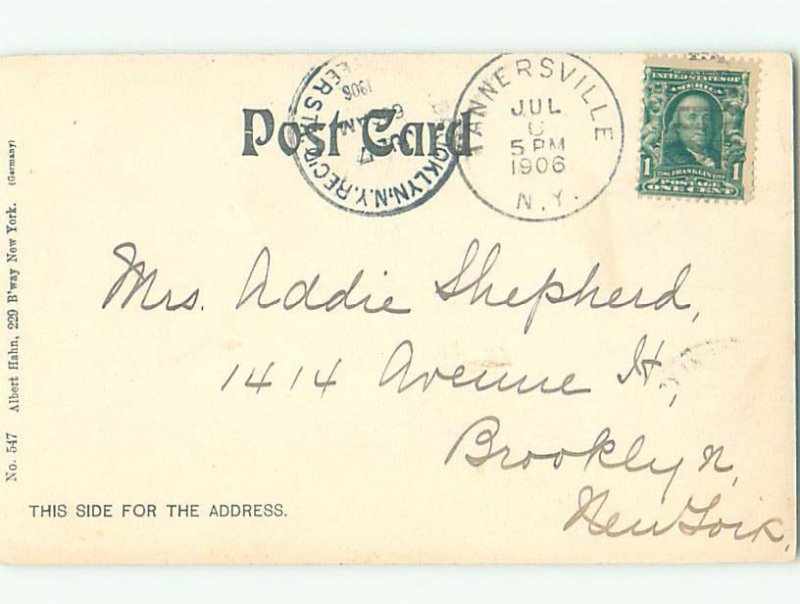 Post Card
TANNERSVILLE
JUL
5 PM
1906
N.Y.
BROOKLYN, N.Y. REC'D.
1906
UNITED STATES OF
AMERICA
1 FRANKLIN 1
POSTAGE
ONE CENT
Mrs. Addie Shepherd,
1414 Avenue H,
Brooklyn,
New York,
THIS SIDE FOR THE ADDRESS.
No. 547 Albert Hahn, 229 B'way New York. (Germany)